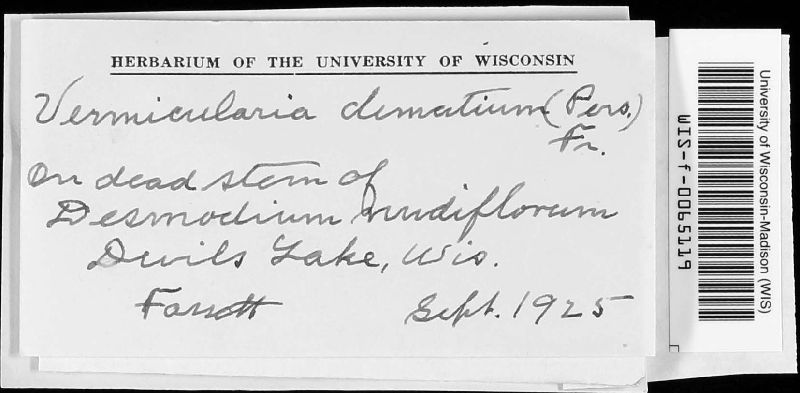 HERBARIUM OF THE UNIVERSITY OF WISCONSIN
Vermicularia dematium (Pers.)
Fr.
On dead stem of
Desmodium nudiflorum
Devils Lake, Wis.
Sept. 1925
University of Wisconsin-Madison (WIS)
WIS-f-0065119